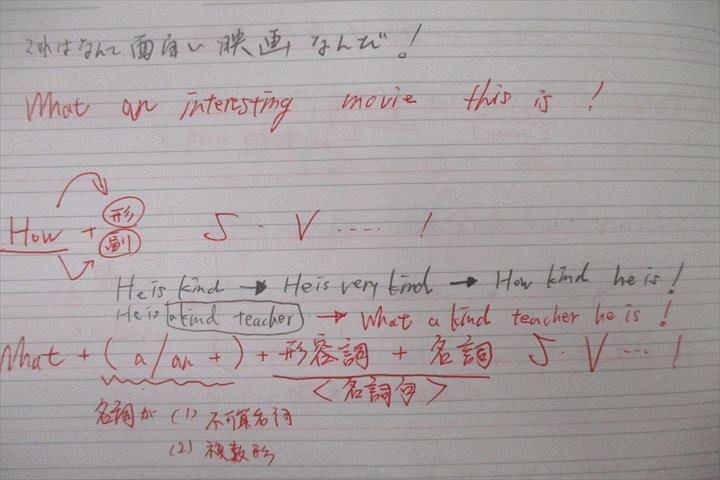 これはなんて面白い映画なんだ!
What an interesting movie this is !
How + 形 副 S・V …… !
He is kind → He is very kind → How kind he is!
He is a kind teacher → What a kind teacher he is!
What + (a/an +) + 形容詞 + 名詞 S・V … !
<名詞句>
名詞が (1) 不可算名詞
(2) 複数形